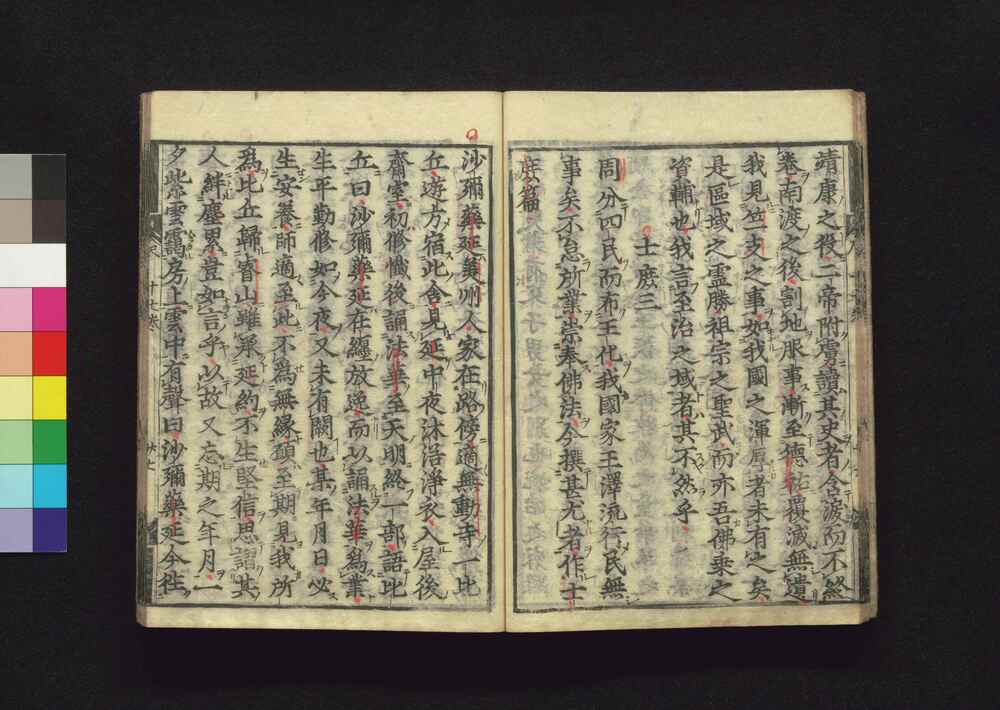 靖康之役二帝附虜讀其史者含淚而不終
卷南渡之後割地服事漸至德祐覆滅無遺
我見竺支之事如我國之渾厚者未有之矣
是區域之靈勝祖宗之聖武而亦吾佛乘之
資輔也我言至治之域者其不然乎
周分四民而布王化我國家王澤流行民無
事矣不怠所業崇奉佛法今撰其尤者作士
庶篇
士庶三
沙彌藥延美州人家在路傍適無動寺一比
丘遊方宿此舍見延中夜沐浴淨衣入屋後
齋室初修懺後誦法華至天明終一部語比
丘曰沙彌藥延在纏放逸而以誦法華爲業
生平勤修如今夜又未有闕也某年月日必
生安養師適至此不爲無緣願至期見我所
爲比丘歸睿山雖尿延約不生堅信思謂其
人絆塵累豈如言乎以故又忘期之年月一
夕紫雲靄房上雲中有聲曰沙彌藥延今往